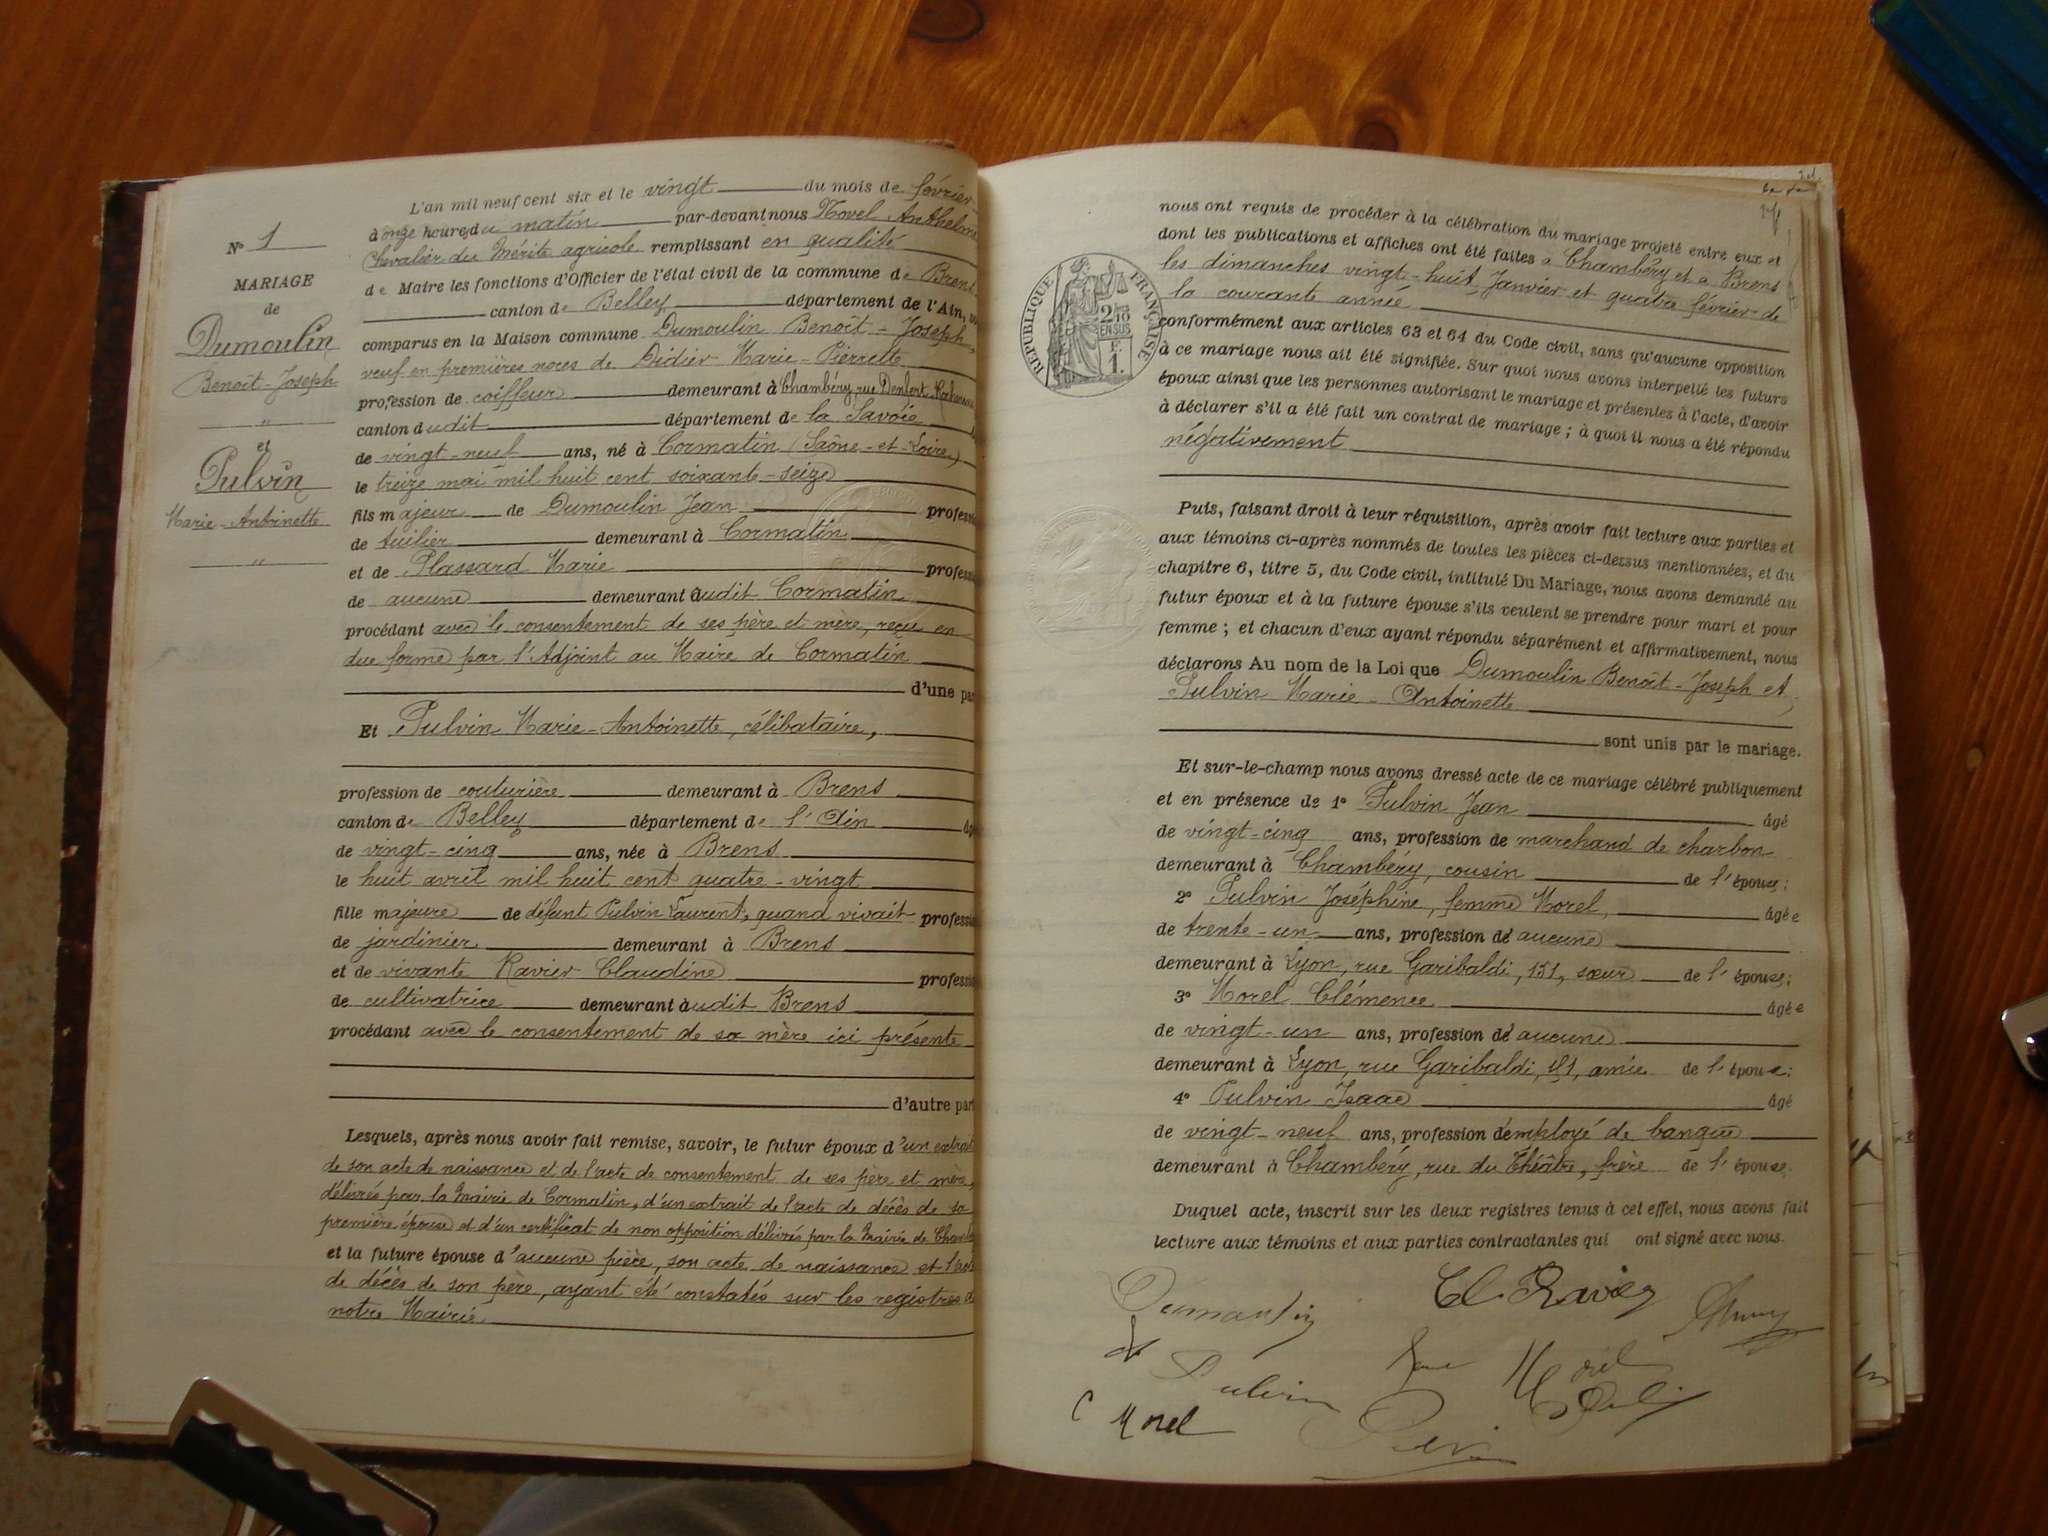 N° 1
MARIAGE
de
Dumoulin
Benoît-Joseph
"
et
Pulvin
Marie-Antoinette
"
L'an mil neuf cent six et le vingt du mois de février
à onze heures du matin par-devant nous Novel Anthelme
Chevalier du Mérite agricole remplissant en qualité
de Maire les fonctions d'Officier de l'état civil de la commune de Brens
canton de Belley département de l'Ain,
comparus en la Maison commune Dumoulin Benoît-Joseph,
veuf en premières noces de Didier Marie-Pierrette
profession de coiffeur demeurant à Chambéry, rue Denfert
canton dudit département de la Savoie
de vingt-neuf ans, né à Cormatin (Saône-et-Loire)
le treize mai mil huit cent soixante-seize
fils majeur de Dumoulin Jean professi
de tuilier demeurant à Cormatin
et de Plassard Marie professi
de aucune demeurant audit Cormatin
procédant avec le consentement de ses père et mère, reçu en
due forme par l'Adjoint au Maire de Cormatin
d'une par
Et Pulvin Marie-Antoinette, célibataire,
profession de couturière demeurant à Brens
canton de Belley département de l'Ain âg
de vingt-cinq ans, née à Brens
le huit avril mil huit cent quatre-vingt
fille majeure de défunt Pulvin Laurent, quand vivait professi
de jardinier demeurant à Brens
et de vivante Ravier Claudine professi
de cultivatrice demeurant audit Brens
procédant avec le consentement de sa mère ici présente
d'autre part
Lesquels, après nous avoir fait remise, savoir, le futur époux d'un extrait
de son acte de naissance et de l'acte de consentement de ses père et mère,
délivrés par la Mairie de Cormatin, d'un extrait de l'acte de décès de sa
première épouse et d'un certificat de non opposition délivrés par la Mairie de Chamb
et la future épouse d'aucune pièce, son acte de naissance et l'acte
de décès de son père, ayant été constatés sur les registres de
notre Mairie
nous ont requis de procéder à la célébration du mariage projeté entre eux et
dont les publications et affiches ont été faites à Chambéry et à Brens
les dimanches vingt-huit Janvier et quatre février de
la courante année
conformément aux articles 63 et 64 du Code civil, sans qu'aucune opposition
à ce mariage nous ait été signifiée. Sur quoi nous avons interpellé les futurs
époux ainsi que les personnes autorisant le mariage et présentes à l'acte, d'avoir
à déclarer s'il a été fait un contrat de mariage ; à quoi il nous a été répondu
négativement
RÉPUBLIQUE FRANÇAISE
2/10
EN SUS
F.
1.
Puis, faisant droit à leur réquisition, après avoir fait lecture aux parties et
aux témoins ci-après nommés de toutes les pièces ci-dessus mentionnées, et du
chapitre 6, titre 5, du Code civil, intitulé Du Mariage, nous avons demandé au
futur époux et à la future épouse s'ils veulent se prendre pour mari et pour
femme ; et chacun d'eux ayant répondu séparément et affirmativement, nous
déclarons Au nom de la Loi que Dumoulin Benoît-Joseph et
Pulvin Marie-Antoinette
sont unis par le mariage.
Et sur-le-champ nous avons dressé acte de ce mariage célébré publiquement
et en présence de 1° Pulvin Jean âgé
de vingt-cinq ans, profession de marchand de charbon
demeurant à Chambéry, cousin de l'épouse ;
2° Pulvin Joséphine, femme Morel, âgée
de trente-un ans, profession de aucune
demeurant à Lyon, rue Garibaldi, 151, sœur de l'épouse ;
3° Morel Clémence âgée
de vingt-un ans, profession de aucune
demeurant à Lyon, rue Garibaldi, 151, amie de l'épouse ;
4° Pulvin Isaac âgé
de vingt-neuf ans, profession d'employé de banque
demeurant à Chambéry, rue du Théâtre, frère de l'épouse.
Duquel acte, inscrit sur les deux registres tenus à cet effet, nous avons fait
lecture aux témoins et aux parties contractantes qui ont signé avec nous.
Cl. Ravier
Dumoulin
Pulvin
C Morel